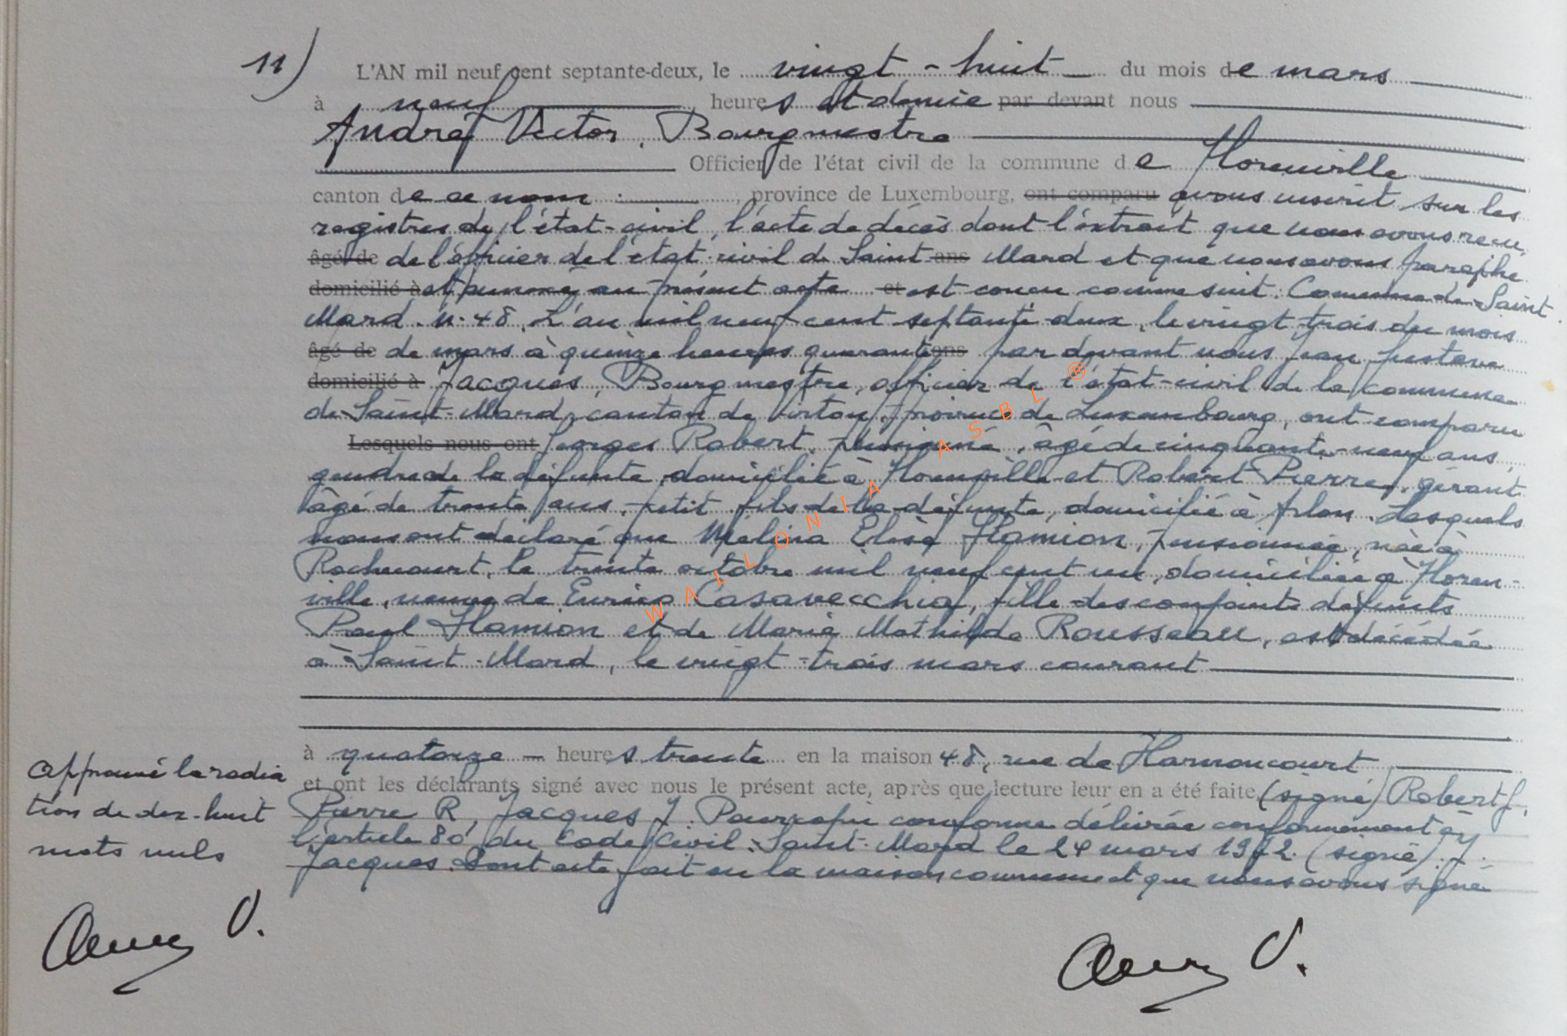 11) L'AN mil neuf cent septante-deux, le vingt-huit du mois de mars
à neuf heures et demie par devant nous
André Victor, Bourgmestre
Officier de l'état civil de la commune de Florenville
canton de ce nom, province de Luxembourg, ont comparu avons inscrit sur les
registres de l'état-civil, l'acte de décès dont l'extrait que nous avons reçu
âgé de de l'officier de l'état-civil de Saint ans Mard et que nous avons paraphé
domicilié à et annexé au présent acte et est conçu comme suit: Commune de Saint
Mard. n. 48. L'an mil neuf cent septante deux, le vingt-trois du mois
âgé de de mars à quinze heures quarante ans par devant nous Jean Gustave
domicilié à Jacques, Bourgmestre, officier de l'état-civil de la commune
de Saint-Mard, canton de Virton, province de Luxembourg, ont comparu
Lesquels nous ont Georges Robert, pensionné, âgé de cinquante-neuf ans,
gendre de la défunte, domicilié à Florenville et Robert Pierre, gérant
âgé de trente ans, petit-fils de la défunte, domicilié à Arlon. Lesquels
nous ont déclaré que Mélina Elise Hamion, pensionnée, née à
Rachecourt, le trente octobre mil neuf cent un, domiciliée à Floren-
ville, veuve de Enrico Casavecchia, fille des conjoints défunts
Paul Hamion et de Marie Mathilde Rousseau, est décédée
à Saint-Mard, le vingt-trois mars courant
à quatorze heures trente en la maison 48, rue de Harnoncourt
et ont les déclarants signé avec nous le présent acte, après que lecture leur en a été faite (signé) Robert G.
Pierre R, Jacques J. Pour copie conforme délivrée conformément à
l'article 80 du Code Civil. Saint-Mard le 24 mars 1972. (signé). J.
Jacques. Dont acte fait en la maison commune et que nous avons signé
approuvé la radia
tion de dix-huit
mots nuls
WALLONIA ASBL ©